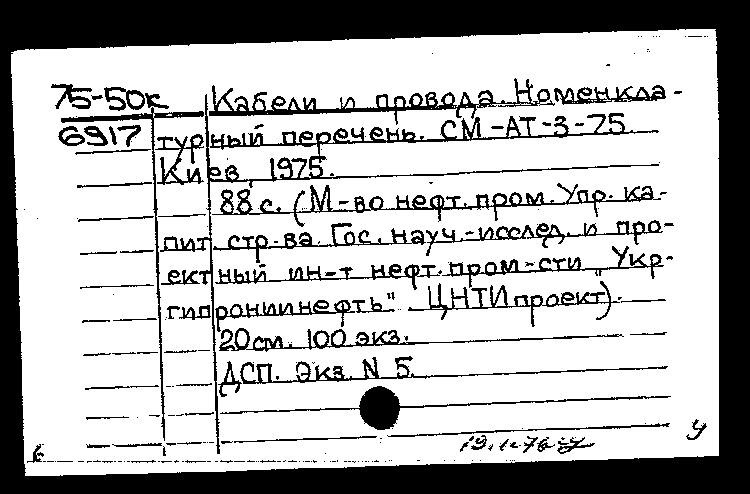 75-50к Кабели и провода. Номенкла-
6917 турный перечень. СМ-АТ-3-75.
Киев, 1975.
88 с. (М-во нефт. пром. Упр. ка-
пит. стр-ва. Гос. науч.-исслед. и про-
ектный ин-т нефт. пром-сти "Укр-
гипрониинефть". ЦНТИпроект).
20 см. 100 экз.
ДСП. Экз. N 5.
у